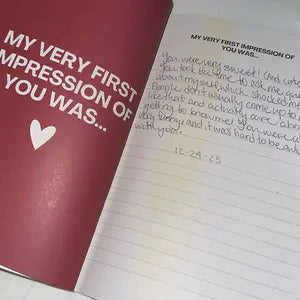 MY VERY FIRST
IMPRESSION OF
YOU WAS...
MY VERY FIRST IMPRESSION OF
YOU WAS...
You were very sweet! And
you took the time to ask me
about myself, which shocked me
People don't usually come up to
like that and actually care
getting to know me! You were
very funny and it was hard to be
with you.
12-24-25